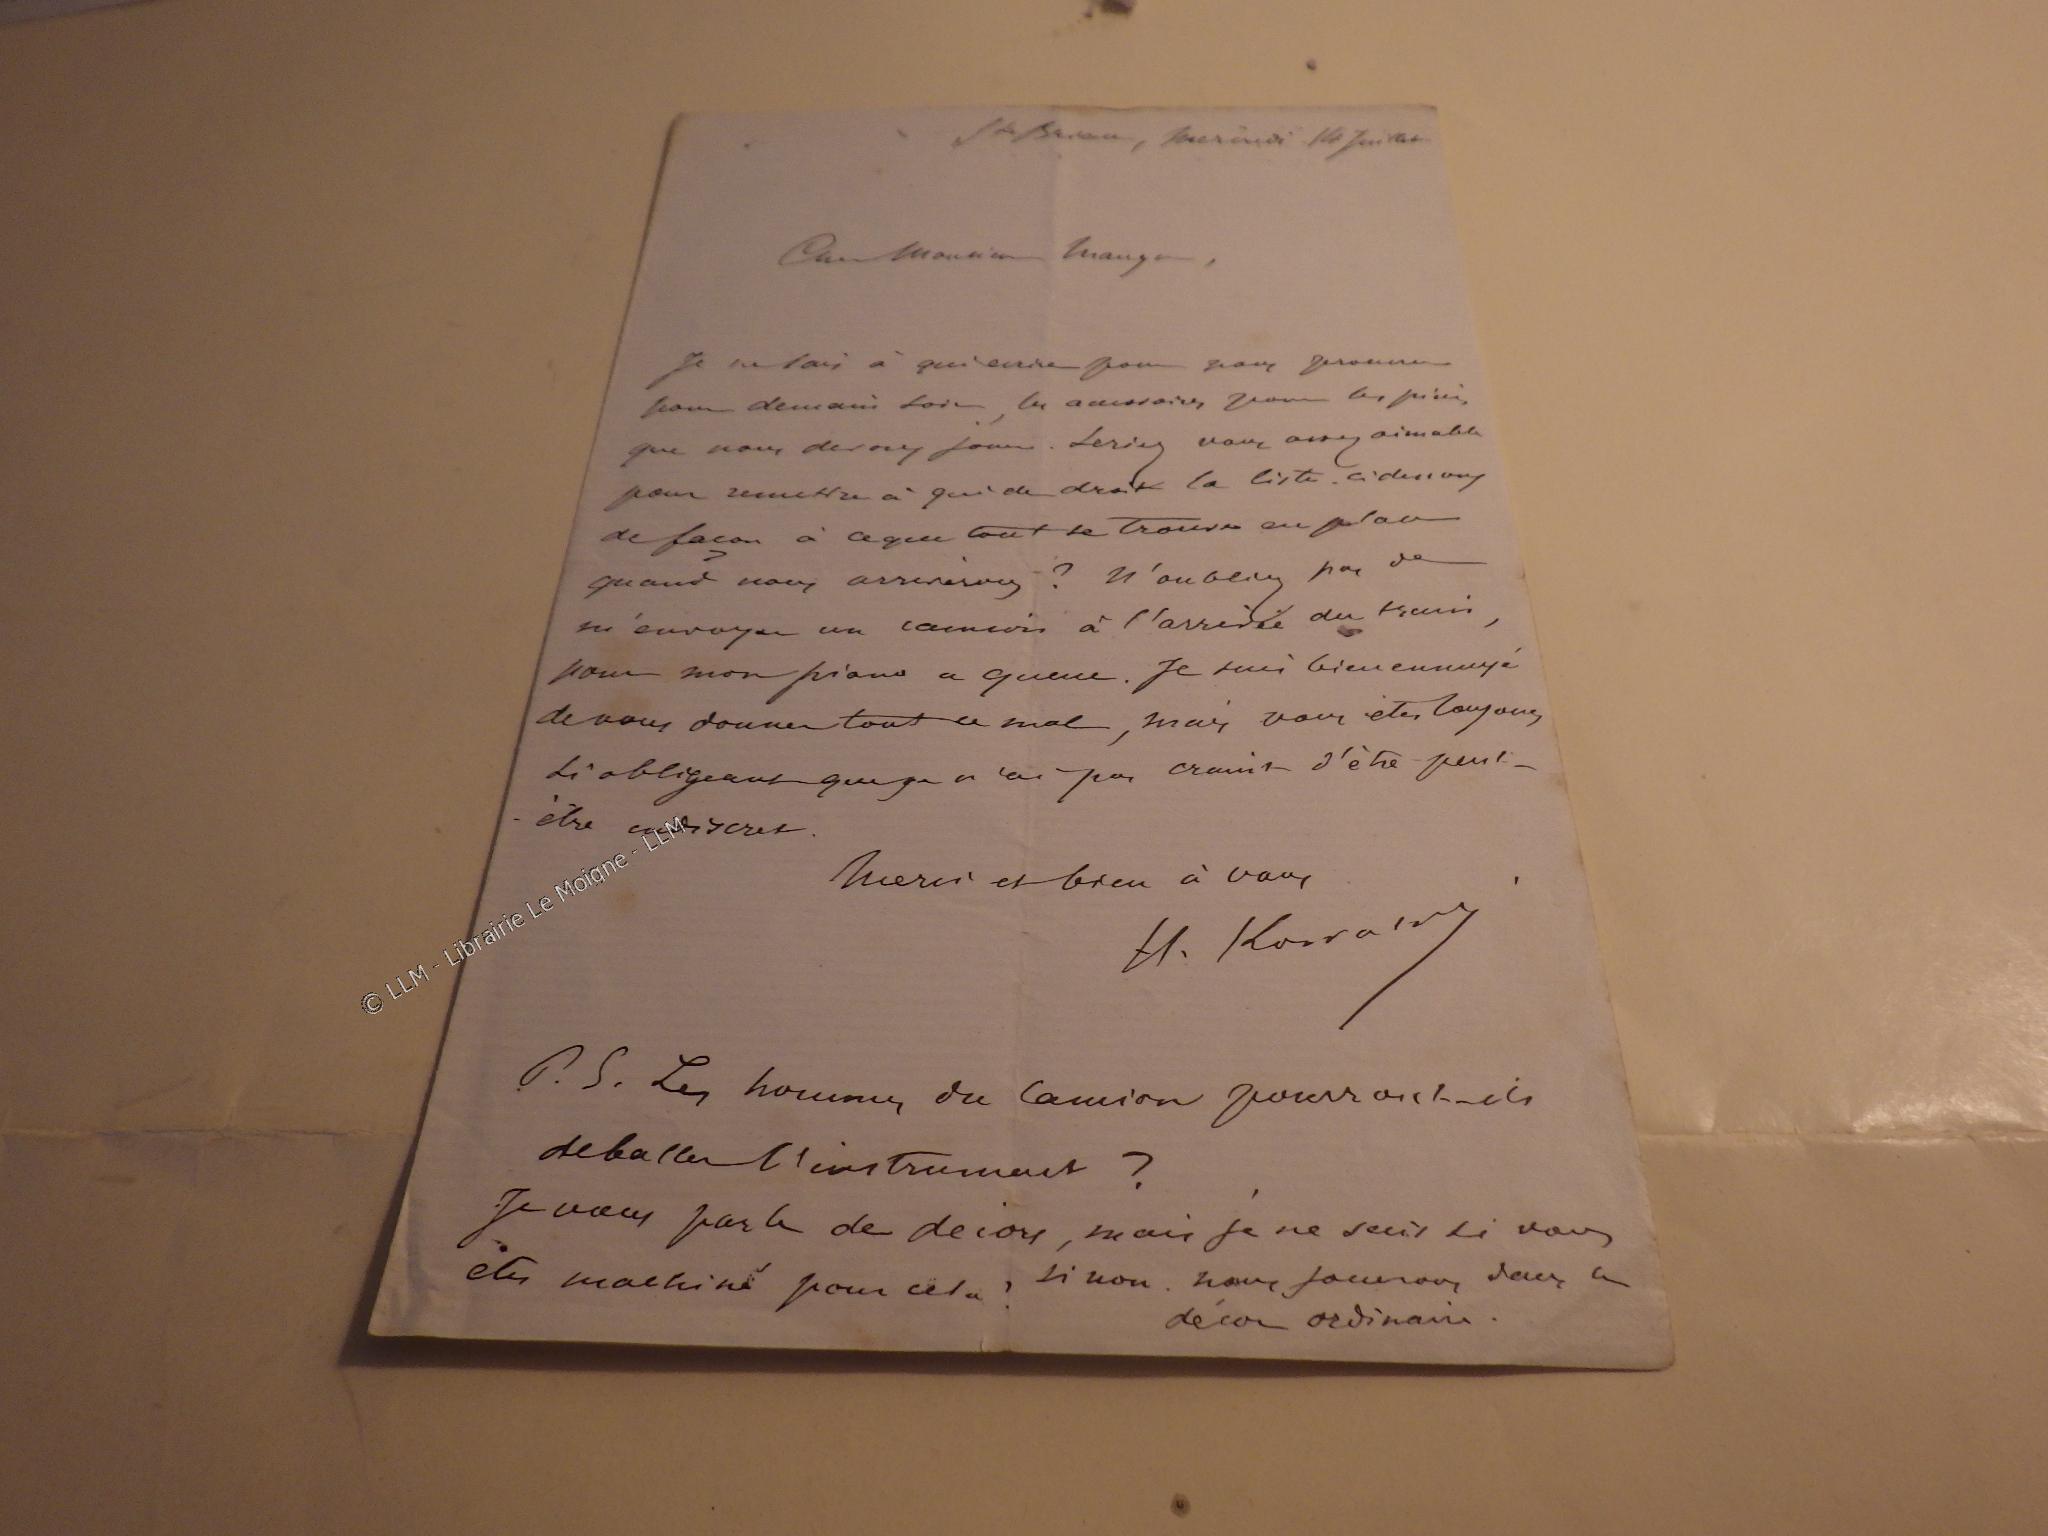 St Brieuc, Mercredi 14 Juillet
Cher Monsieur
Je ne sais à qui écrire pour nous procurer
pour demain soir, les accessoires pour les pièces
que nous devons jouer. Seriez vous assez aimable
pour remettre à qui de droit la liste ci dessous
de façon à ce que tout se trouve en place
quand nous arriverons ? N'oubliez pas de
m'envoyer un camion à l'arrivée du train,
pour mon piano a queue. Je suis bien ennuyé
de vous donner tout ce mal, mais vous êtes toujours
si obligeant que je n'ai pas craint d'être peut-
-être indiscret.
Merci et bien à vous
H.
P.S. Les hommes du camion pourront-ils
deballer l'instrument ?
Je vous parle de decors, mais je ne sais si vous
êtes machiné pour cela ; sinon nous jouerons dans un
décor ordinaire.
© LLM - Librairie Le Moigne - LLM